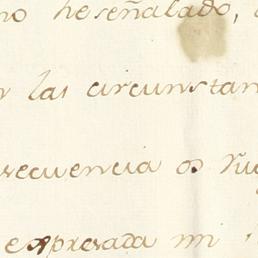 no he señalado,
r las circunstan
secuencia os rue
expresada mi